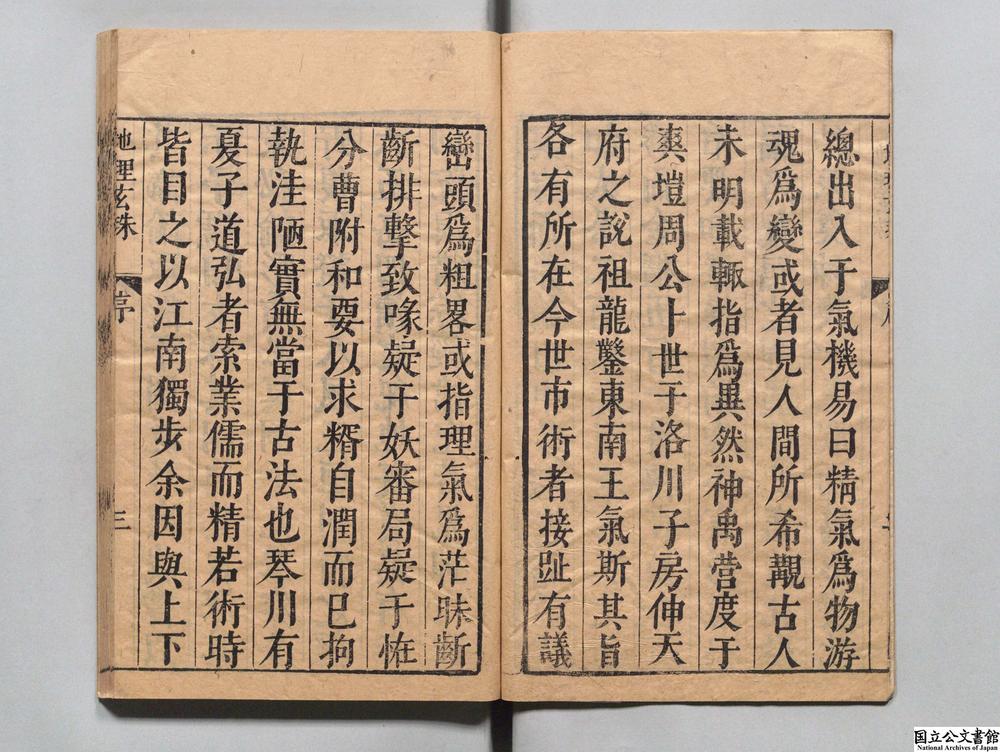 總出入于氣機易曰精氣爲物游
魂爲變或者見人間所希覯古人
未明載輙指爲異然神禹營度于
爽塏周公卜世于洛川子房伸天
府之說祖龍鑿東南王氣斯其旨
各有所在今世市術者接趾有議
巒頭爲粗畧或指理氣爲茫昧齗
齗排擊致喙疑于妖審局疑于恠
分曹附和要以求糈自潤而已拘
執洼陋實無當于古法也琴川有
夏子道弘者索業儒而精若術時
皆目之以江南獨步余因與上下
地理玄珠 序 三
国立公文書館
National Archives of Japan